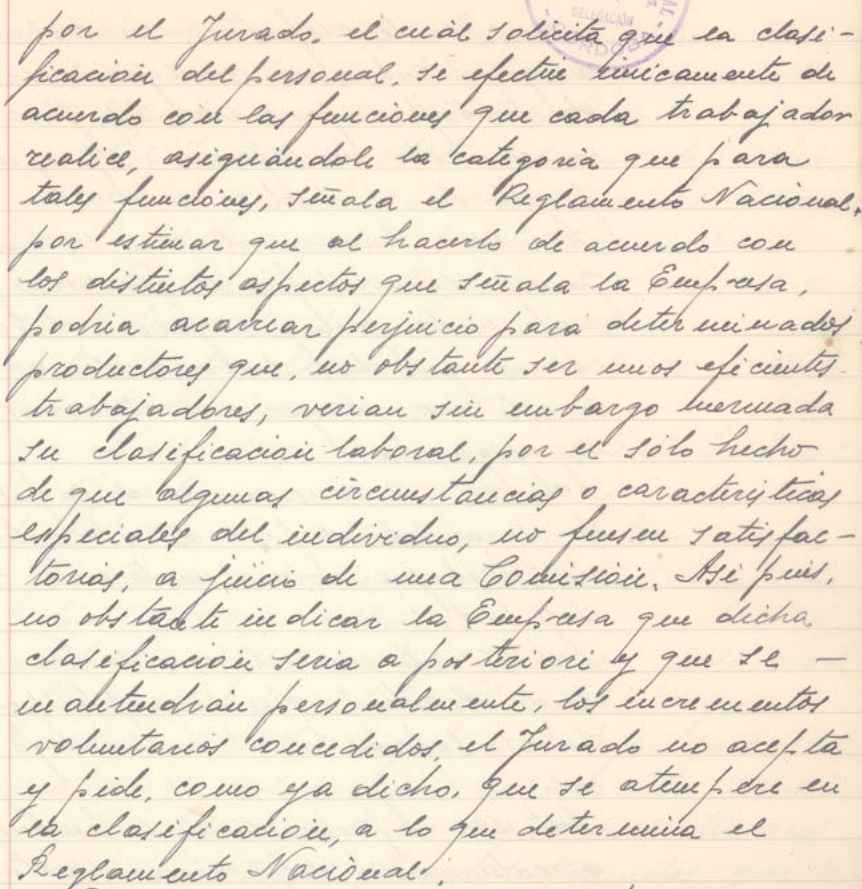 DELEGACIÓN
CORDOBA
por el Jurado, el cuál solicita que la clasi-
ficación del personal, se efectúe únicamente de
acuerdo con las funciones que cada trabajador
realice, asignándole la categoria que para
tales funciones, señala el Reglamento Nacional,
por estimar que al hacerlo de acuerdo con
los distintos aspectos que señala la Empresa,
podria acarrear perjuicio para determinados
productores que, no obstante ser unos eficientes
trabajadores, verian sin embargo mermada
su clasificación laboral, por el sólo hecho
de que algunas circunstancias o caracteristicas
especiales del individuo, no fuesen satisfac-
torias, a juicio de una Comisión. Asi pues,
no obstante indicar la Empresa que dicha
clasificación seria a posteriori y que se -
mantendrán personalmente, los incrementos
voluntarios concedidos, el Jurado no acepta
y pide, como ya dicho, que se atempere en
la clasificación, a lo que determina el
Reglamento Nacional.